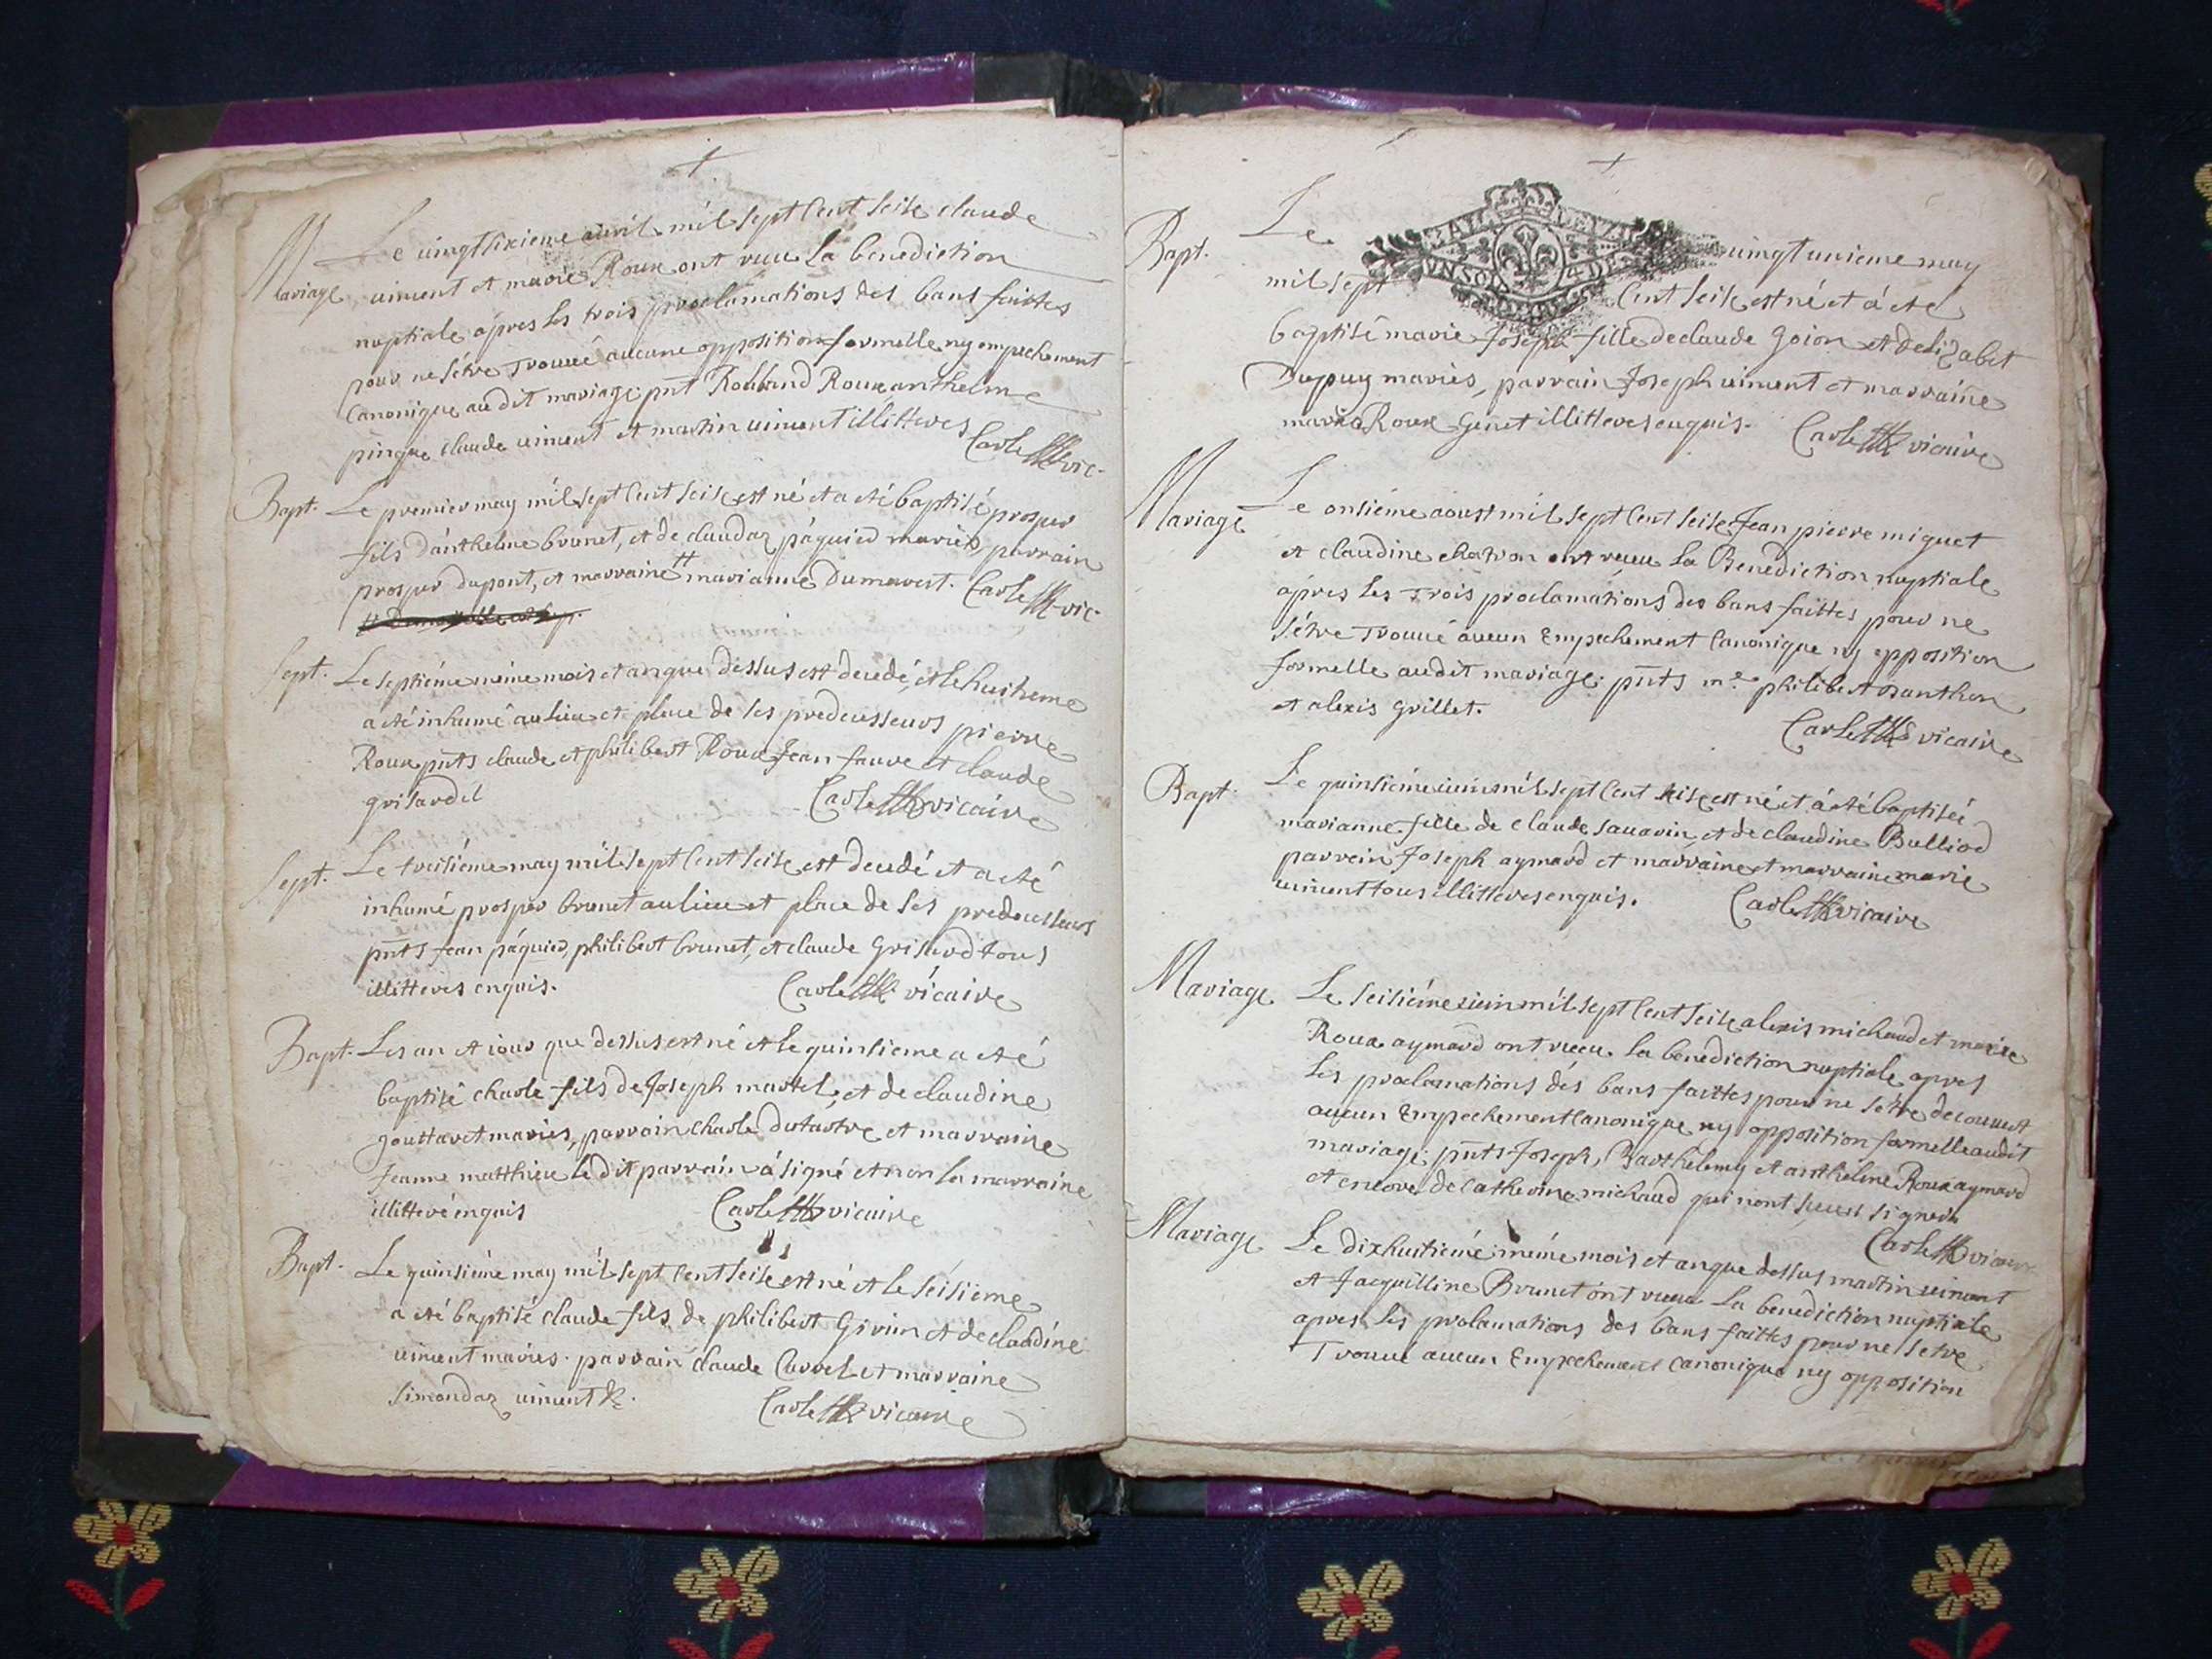 Mariage Le vingt sixieme auril mil sept Cent seise claude
uiuent et marie Roux ont receu la benediction
nuptiale apres les trois proclamations des bans faittes
pour ne sétre trouué aucune opposition formelle ny empechement
Canonique au dit mariage pnt Roux anthelme
pingue claude uiuent et martin uiuent illitteres Carle vic.
Bapt. Le premier may mil sept Cent seise est né et a eté baptisé prosper
fils d'anthelme brunet, et de claudaz páquier mariés parrain
prosper dupont, et marraine # marianne Dumarest. Carle vic.
Sept. Le septiéme méme mois et an que dessus est decedé, et le huitieme
a eté inhumé au lieu et place de ses predecesseurs pierre
Roux pnts claude et philibert Roux Jean faure et claude
grisard et
Carle vicaire
Sept. Le treisiéme may mil sept Cent seise est decedé et a eté
inhumé prosper brunet au lieu et place de ses predecesseurs
pnts Jean páquier, philibert brunet, et claude Grisard tous
illitteres enquis. Carle vicaire
Bapt. Les an et iour que dessus est né et le quinsieme a eté
baptisé charle fils de Joseph martel et de claudine
gouttaret mariés, parrain charle dutartre et marraine
Jeanne matthieu le dit parrain á signé et non la marraine
illitteré enquis Carle vicaire
Bapt. Le quinsiéme may mil sept Cent seise est né et le séisieme
a eté baptisé claude fils de philibert Girin et de claudine
uiuent mariés. parrain claude Carrel et marraine
simondaz uiuent &c. Carle vicaire
Bapt. Le vingt unieme may
UN SOL 4 DE
mil sept Cent seise est né et á eté
baptisé marie Joseph fille de claude goion et delizabet
Dupuy mariés, parrain Joseph uiuent et marraine
marie Roux Genet illitteres enquis. Carle vicaire
Mariage Le onsiéme aoust mil sept Cent seise Jean pierre miguet
et claudine chatron ont receu la Benediction nuptiale
ápres les trois proclamations des bans faittes pour ne
sétre trouué aucun Empechement Canonique ny opposition
formelle audit mariage; pnts me. philibert
et alexis grillet.
Carle vicaire
Bapt. Le quinsiéme iuin mil sept Cent seise est né et á eté baptiseé
marianne fille de claude sauarin et de claudine Bulliod
parrein Joseph aymard et marraine et marraine marie
uiuent tous illitteres enquis. Carle vicaire
Mariage Le seisiéme iuin mil sept Cent seise alexis michaud et marie
Roux aymard ont receu la benediction nuptiale apres
les proclamations dés bans faittes pour ne sétre decouuert
aucun Empechement Canonique ny opposition formelle audit
mariage; pnts Joseph, Barthelemy et anthelme Roux aymard
et encore de Catherine michaud qui nont sceu signer
Carle vicaire
Mariage Le dixhuitiéme méme mois et an que dessus martin uiuent
et Jacquilline Brunet ont receu la benediction nuptiale
apres les proclamations des bans faittes pour ne sétre
Trouué aucun Empechement canonique ny opposition